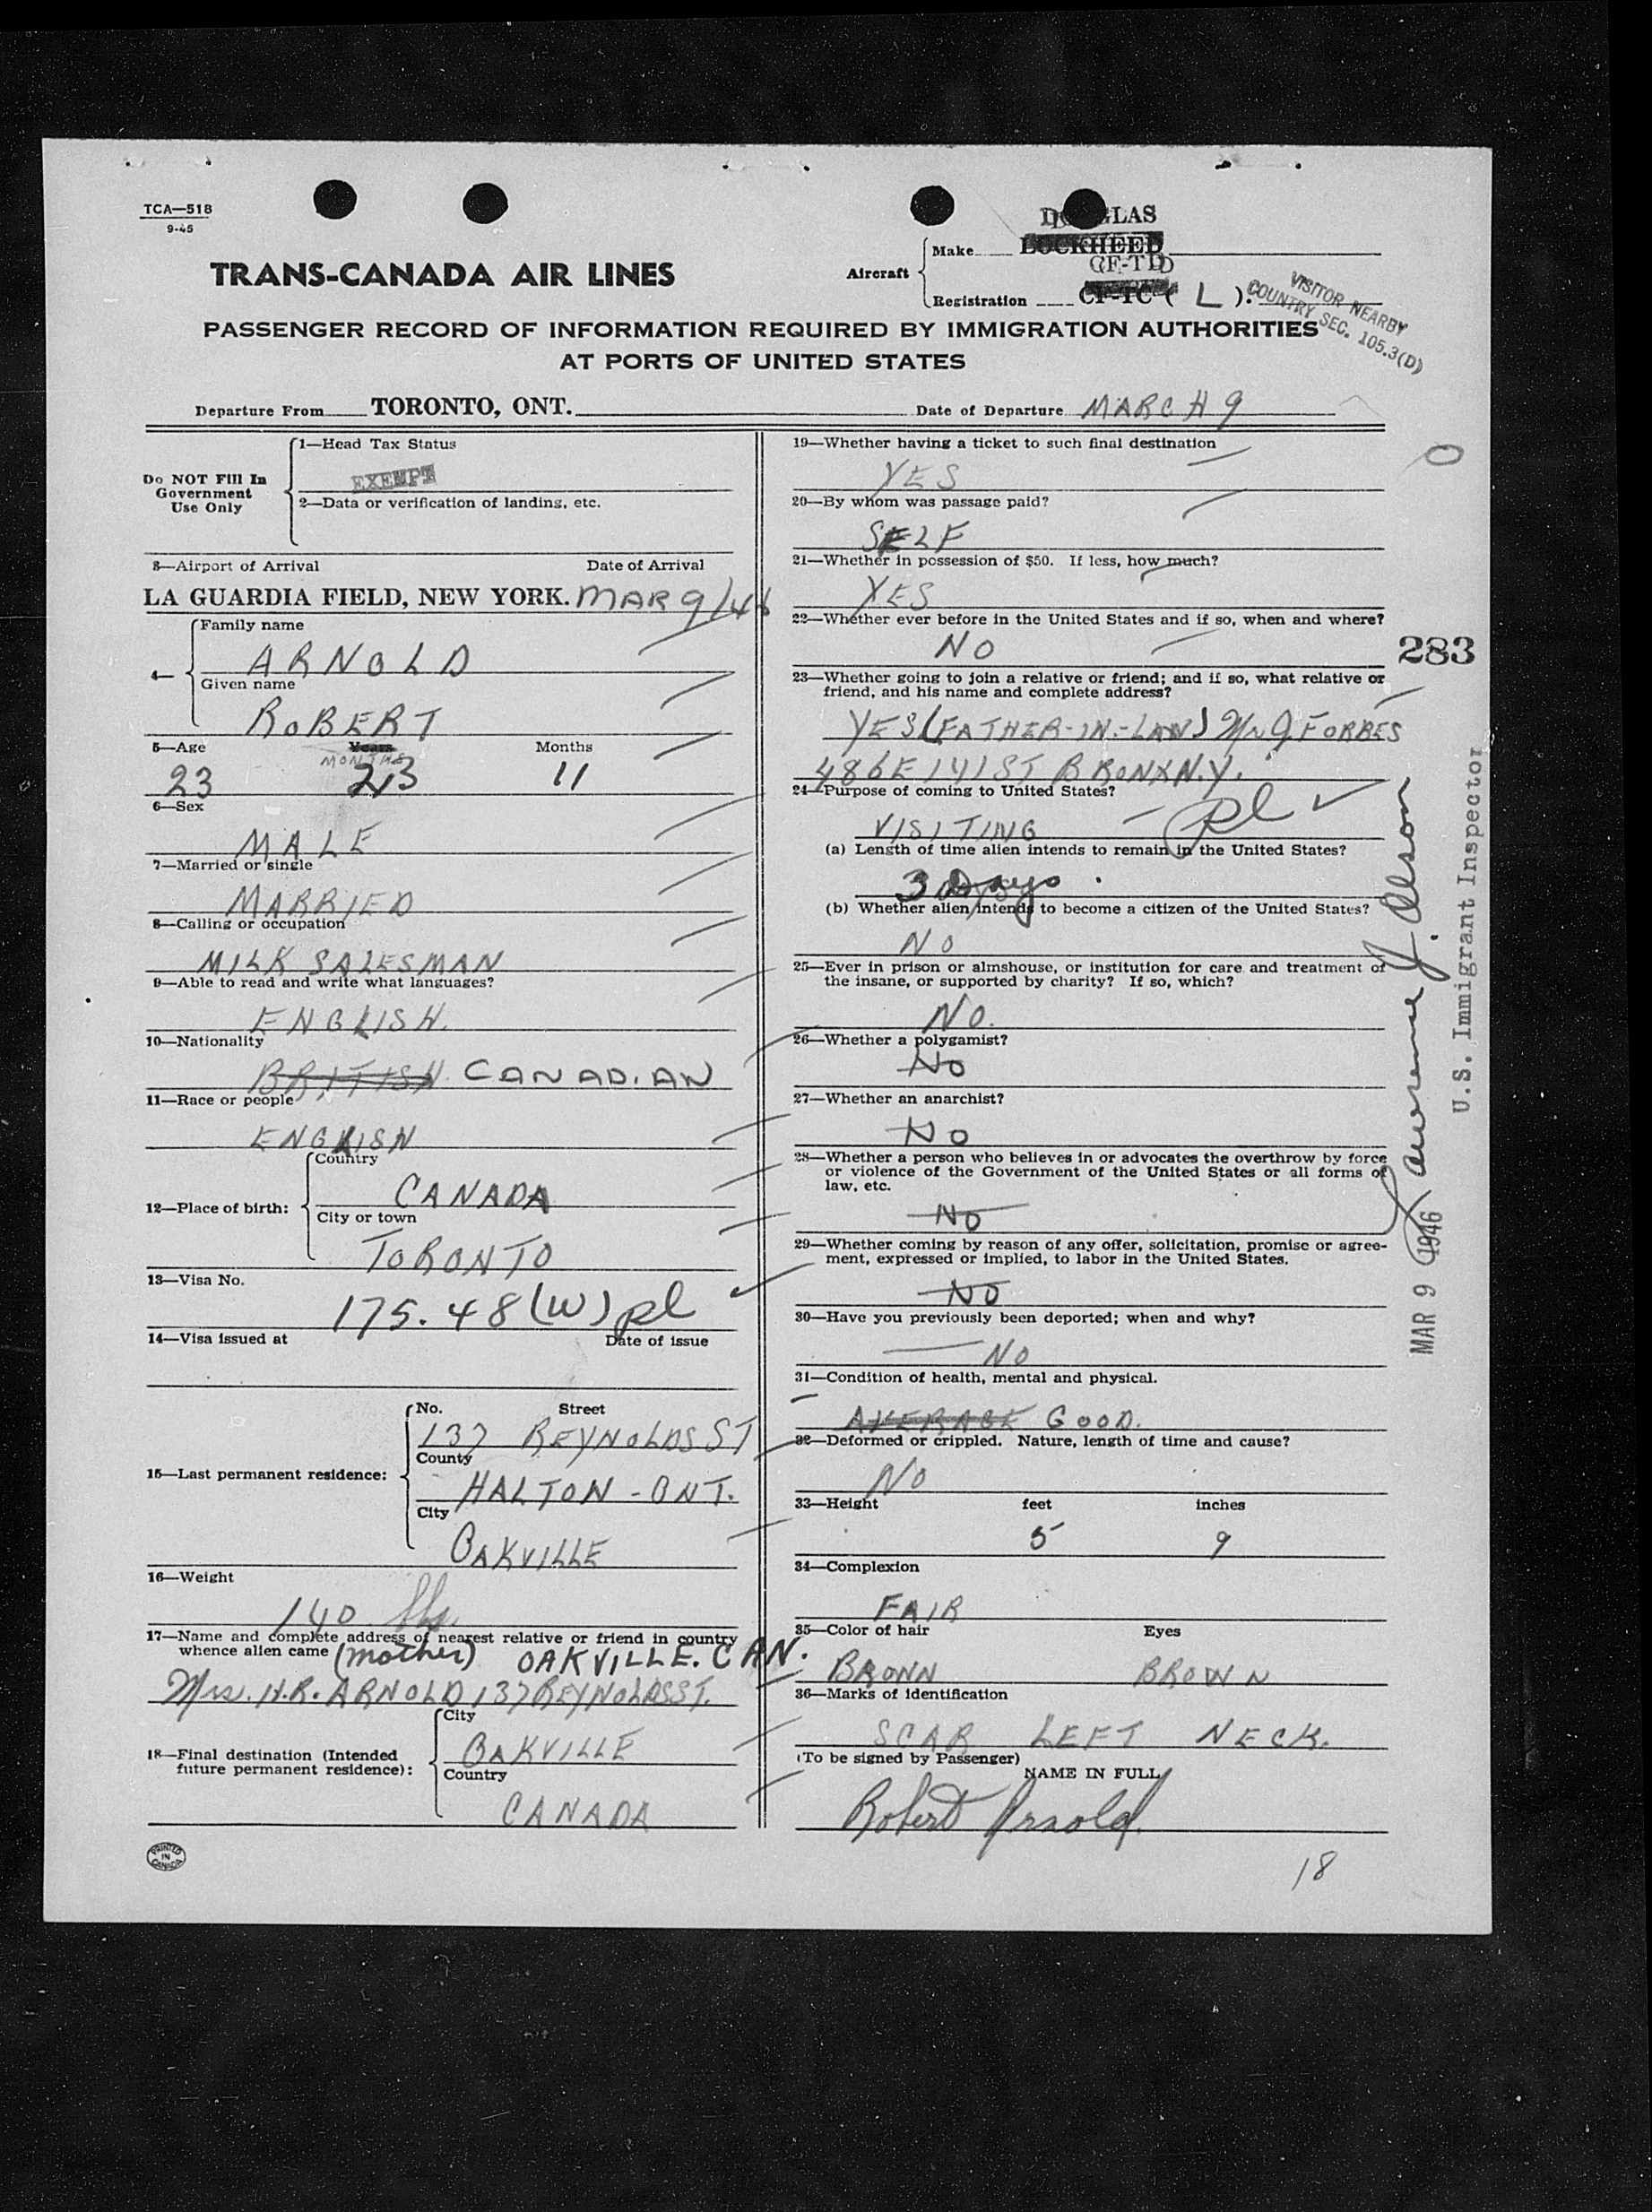 TCA—518
9-45
DOUGLAS
Make LOCKHEED
Aircraft
CF-TD
Registration CF-TC ( L ).
VISITOR NEARBY
COUNTRY SEC. 105.3(D)
TRANS-CANADA AIR LINES
PASSENGER RECORD OF INFORMATION REQUIRED BY IMMIGRATION AUTHORITIES
AT PORTS OF UNITED STATES
Departure From TORONTO, ONT.
Date of Departure MARCH 9
Do NOT Fill In
Government
Use Only
1—Head Tax Status
EXEMPT
2—Data or verification of landing, etc.
3—Airport of Arrival Date of Arrival
LA GUARDIA FIELD, NEW YORK. MAR 9/46
4—
Family name
ARNOLD
Given name
ROBERT
5—Age Years Months
MONTHS
23 23 11
6—Sex
MALE
7—Married or single
MARRIED
8—Calling or occupation
MILK SALESMAN
9—Able to read and write what languages?
ENGLISH.
10—Nationality
BRITISH CANADIAN
11—Race or people
ENGLISH
12—Place of birth:
Country
CANADA
City or town
TORONTO
13—Visa No.
175.48 (W) pl
14—Visa issued at Date of issue
15—Last permanent residence:
No. Street
137 REYNOLDS ST
County
HALTON - ONT.
City
OAKVILLE
16—Weight
140 lbs.
17—Name and complete address of nearest relative or friend in country
whence alien came (mother) OAKVILLE. CAN.
Mrs. H.R. ARNOLD 137 REYNOLDS ST.
18—Final destination (Intended
future permanent residence):
City
OAKVILLE
Country
CANADA
PRINTED
IN
CANADA
19—Whether having a ticket to such final destination
YES
20—By whom was passage paid?
SELF
21—Whether in possession of $50. If less, how much?
YES
22—Whether ever before in the United States and if so, when and where?
NO
23—Whether going to join a relative or friend; and if so, what relative or
friend, and his name and complete address?
YES (FATHER-IN-LAW) Mr J FORBES
486 E 141 ST BRONX N.Y.
24—Purpose of coming to United States?
VISITING pl
(a) Length of time alien intends to remain in the United States?
3 Days.
(b) Whether alien intends to become a citizen of the United States?
NO
25—Ever in prison or almshouse, or institution for care and treatment of
the insane, or supported by charity? If so, which?
NO.
26—Whether a polygamist?
NO
27—Whether an anarchist?
NO
28—Whether a person who believes in or advocates the overthrow by force
or violence of the Government of the United States or all forms of
law, etc.
NO
29—Whether coming by reason of any offer, solicitation, promise or agree-
ment, expressed or implied, to labor in the United States.
NO
30—Have you previously been deported; when and why?
NO
31—Condition of health, mental and physical.
AVERAGE GOOD.
32—Deformed or crippled. Nature, length of time and cause?
NO
33—Height feet inches
5 9
34—Complexion
FAIR
35—Color of hair Eyes
BROWN BROWN
36—Marks of identification
SCAR LEFT NECK.
(To be signed by Passenger)
NAME IN FULL
Robert Arnold
18
0
283
Lawrence J. Olson
U.S. Immigrant Inspector
MAR 9 1946